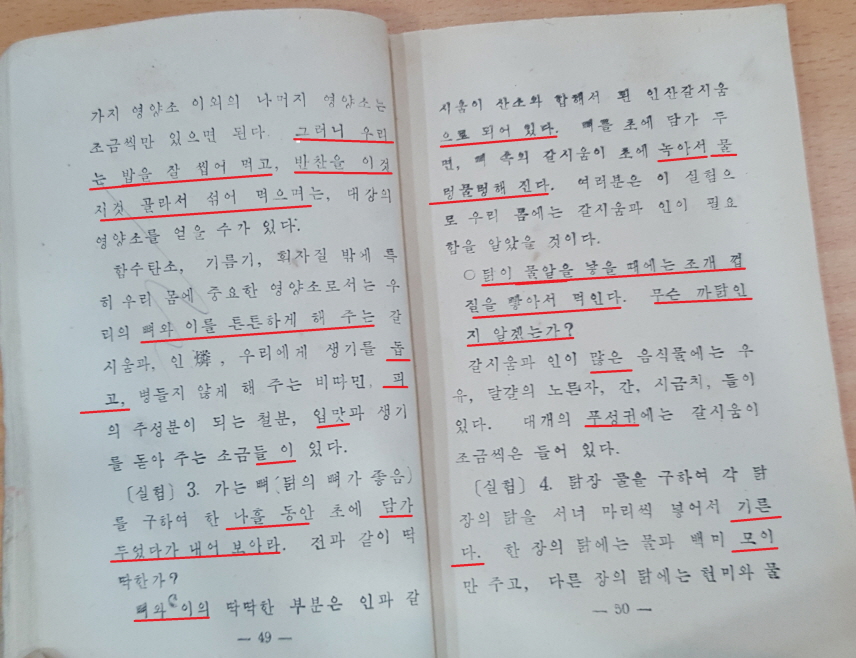 가지 영양소 이외의 나머지 영양소는
조금씩만 있으면 된다. 그러니 우리
는 밥을 잘 씹어 먹고, 반찬을 이것
저것 골라서 섞어 먹으며는, 대강의
영양소를 얻을 수가 있다.
함수탄소, 기름기, 흰자질 밖에 특
히 우리 몸에 중요한 영양소로서는 우
리의 뼈와 이를 튼튼하게 해 주는 갈
시움과, 인燐, 우리에게 생기를 돕
고, 병들지 않게 해 주는 비따민, 피
의 주성분이 되는 철분, 입맛과 생기
를 돋아 주는 소금들 이 있다.
〔실험〕 3. 가는 뼈(닭의 뼈가 좋음)
를 구하여 한 나흘 동안 초에 담가
두었다가 내어 보아라. 전과 같이 딱
딱한가?
뼈와 이의 딱딱한 부분은 인과 갈
— 49 —
시움이 산소와 합해서 된 인산갈시움
으로 되어 있다. 뼈를 초에 담가 두
면, 뼈 속의 갈시움이 초에 녹아서 물
렁물렁해 진다. 여러분은 이 실험으
로 우리 몸에는 갈시움과 인이 필요
함을 알았을 것이다.
○ 닭이 물알을 낳을 때에는 조개 껍
질을 빻아서 먹인다. 무슨 까닭인
지 알겠는가?
갈시움과 인이 많은 음식물에는 우
유, 달걀의 노른자, 간, 시금치, 들이
있다. 대개의 푸성귀에는 갈시움이
조금씩은 들어 있다.
〔실험〕 4. 닭장 둘을 구하여 각 닭
장의 닭을 서너 마리씩 넣어서 기른
다. 한 장의 닭에는 물과 백미 모이
만 주고, 다른 장의 닭에는 현미와 물
— 50 —